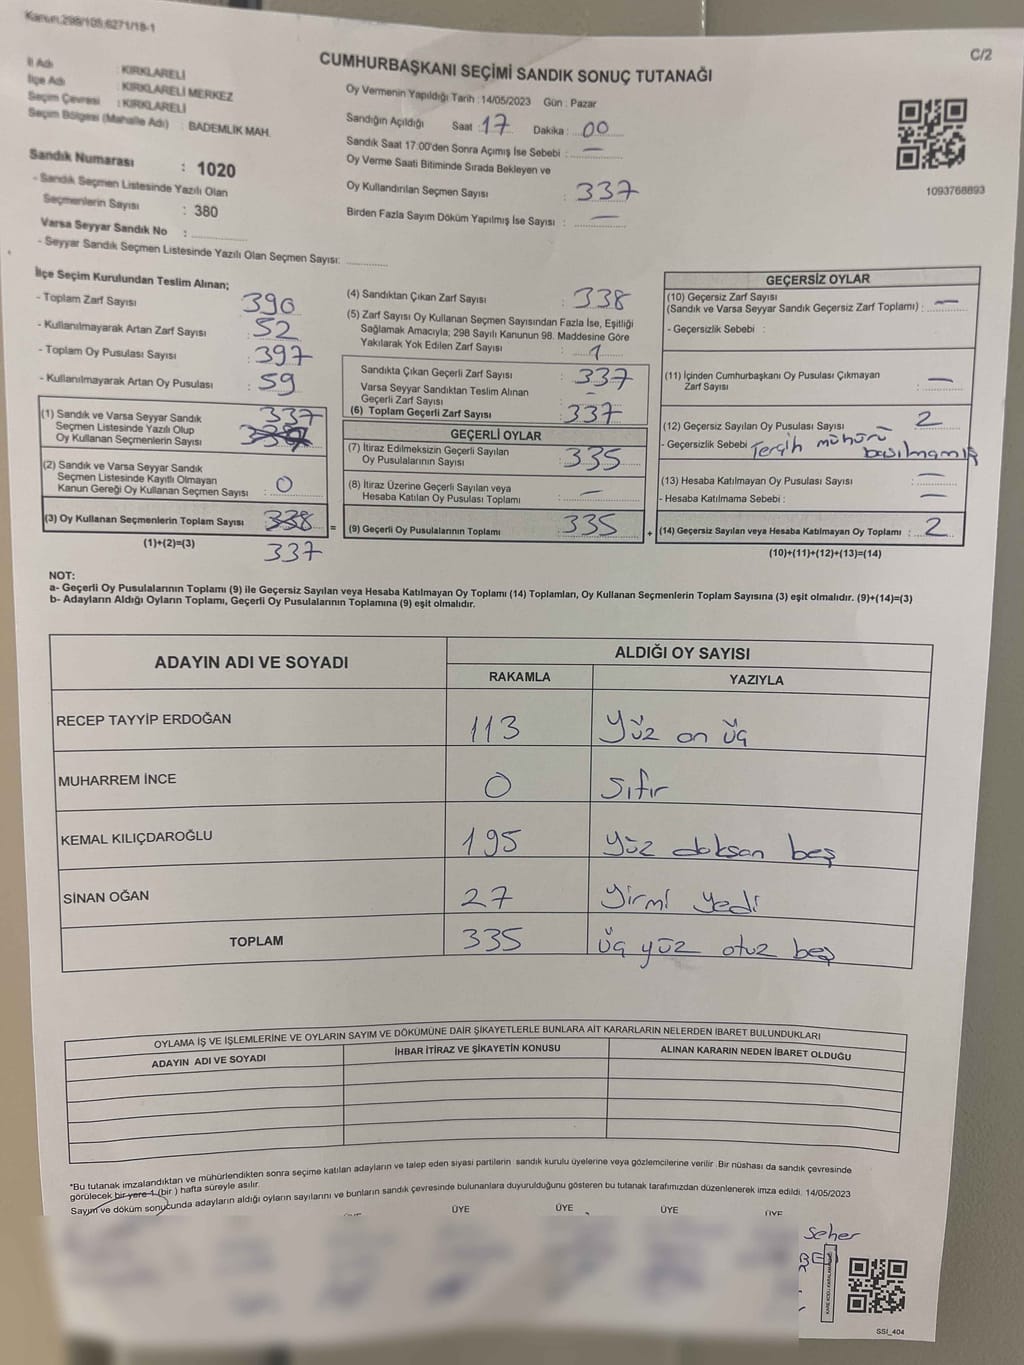 Kanun:298/105;6271/18-1
C/2
CUMHURBAŞKANI SEÇİMİ SANDIK SONUÇ TUTANAĞI
İl Adı : KIRKLARELİ
İlçe Adı : KIRKLARELİ MERKEZ
Seçim Çevresi : KIRKLARELİ
Seçim Bölgesi (Mahalle Adı) : BADEMLİK MAH.
Sandık Numarası : 1020
- Sandık Seçmen Listesinde Yazılı Olan
Seçmenlerin Sayısı : 380
Varsa Seyyar Sandık No :
- Seyyar Sandık Seçmen Listesinde Yazılı Olan Seçmen Sayısı:
Oy Vermenin Yapıldığı Tarih :14/05/2023 Gün : Pazar
Sandığın Açıldığı Saat :17 Dakika : 00
Sandık Saat 17:00'den Sonra Açımış İse Sebebi : —
Oy Verme Saati Bitiminde Sırada Bekleyen ve
Oy Kullandırılan Seçmen Sayısı : 337
Birden Fazla Sayım Döküm Yapılmış İse Sayısı : —
1093768893
İlçe Seçim Kurulundan Teslim Alınan;
- Toplam Zarf Sayısı : 390
- Kullanılmayarak Artan Zarf Sayısı : 52
- Toplam Oy Pusulası Sayısı : 397
- Kullanılmayarak Artan Oy Pusulası : 59
(1) Sandık ve Varsa Seyyar Sandık 337
Seçmen Listesinde Yazılı Olup
Oy Kullanan Seçmenlerin Sayısı
(2) Sandık ve Varsa Seyyar Sandık
Seçmen Listesinde Kayıtlı Olmayan
Kanun Gereği Oy Kullanan Seçmen Sayısı : 0
(3) Oy Kullanan Seçmenlerin Toplam Sayısı 338 =
(1)+(2)=(3) 337
(4) Sandıktan Çıkan Zarf Sayısı : 338
(5) Zarf Sayısı Oy Kullanan Seçmen Sayısından Fazla İse, Eşitliği
Sağlamak Amacıyla; 298 Sayılı Kanunun 98. Maddesine Göre
Yakılarak Yok Edilen Zarf Sayısı : 1
Sandıkta Çıkan Geçerli Zarf Sayısı : 337
Varsa Seyyar Sandıktan Teslim Alınan
Geçerli Zarf Sayısı :
(6) Toplam Geçerli Zarf Sayısı : 337
GEÇERLİ OYLAR
(7) İtiraz Edilmeksizin Geçerli Sayılan
Oy Pusulalarının Sayısı : 335
(8) İtiraz Üzerine Geçerli Sayılan veya
Hesaba Katılan Oy Pusulası Toplamı : —
(9) Geçerli Oy Pusulalarının Toplamı : 335 +
GEÇERSİZ OYLAR
(10) Geçersiz Zarf Sayısı
(Sandık ve Varsa Seyyar Sandık Geçersiz Zarf Toplamı) : —
- Geçersizlik Sebebi :
(11) İçinden Cumhurbaşkanı Oy Pusulası Çıkmayan
Zarf Sayısı : —
(12) Geçersiz Sayılan Oy Pusulası Sayısı : 2
- Geçersizlik Sebebi Tercih mühürü basılmamış
(13) Hesaba Katılmayan Oy Pusulası Sayısı : —
- Hesaba Katılmama Sebebi : —
(14) Geçersiz Sayılan veya Hesaba Katılmayan Oy Toplamı : 2
(10)+(11)+(12)+(13)=(14)
NOT:
a- Geçerli Oy Pusulalarının Toplamı (9) ile Geçersiz Sayılan veya Hesaba Katılmayan Oy Toplamı (14) Toplamları, Oy Kullanan Seçmenlerin Toplam Sayısına (3) eşit olmalıdır. (9)+(14)=(3)
b- Adayların Aldığı Oyların Toplamı, Geçerli Oy Pusulalarının Toplamına (9) eşit olmalıdır.
ADAYIN ADI VE SOYADI
ALDIĞI OY SAYISI
RAKAMLA YAZIYLA
RECEP TAYYİP ERDOĞAN 113 Yüz on üç
MUHARREM İNCE 0 Sıfır
KEMAL KILIÇDAROĞLU 195 yüz doksan beş
SİNAN OĞAN 27 yirmi yedi
TOPLAM 335 üç yüz otuz beş
OYLAMA İŞ VE İŞLEMLERİNE VE OYLARIN SAYIM VE DÖKÜMÜNE DAİR ŞİKAYETLERLE BUNLARA AİT KARARLARIN NELERDEN İBARET BULUNDUKLARI
ADAYIN ADI VE SOYADI İHBAR İTİRAZ VE ŞİKAYETİN KONUSU ALINAN KARARIN NEDEN İBARET OLDUĞU
*Bu tutanak imzalandıktan ve mühürlendikten sonra seçime katılan adayların ve talep eden siyasi partilerin sandık kurulu üyelerine veya gözlemcilerine verilir. Bir nüshası da sandık çevresinde
görülecek bir yere 1 (bir ) hafta süreyle asılır.
Sayım ve döküm sonucunda adayların aldığı oyların sayılarını ve bunların sandık çevresinde bulunanlara duyurulduğunu gösteren bu tutanak tarafımızdan düzenlenerek imza edildi. 14/05/2023
ÜYE ÜYE ÜYE ÜYE
Seher
SSI_404